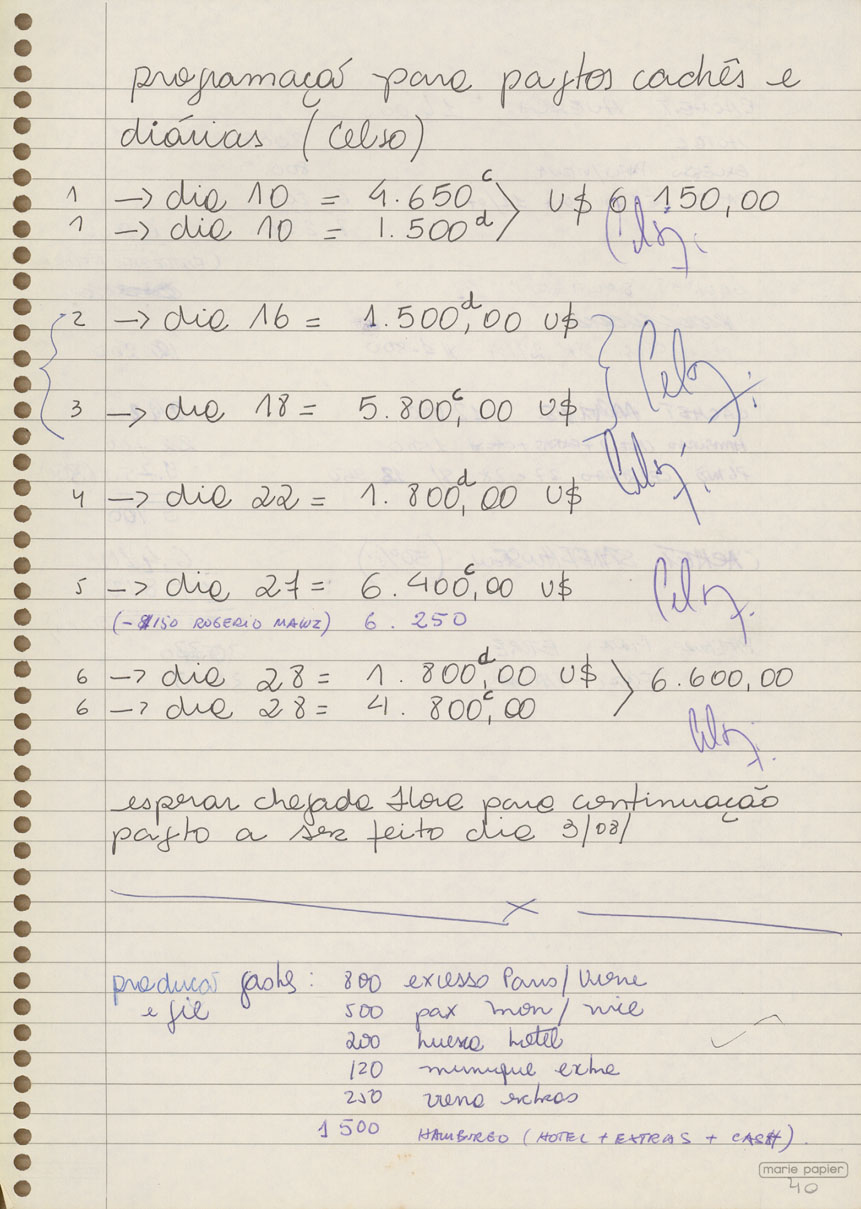 programaçã para pagtos cachês e
diárias (Celso)
1 -> dia 10 = 4.650 c
1 -> dia 10 = 1.500 d > U$ 6.150,00
Celso.
2 -> dia 16 = 1.500,00 d U$
Celso.
3 -> dia 18 = 5.800,00 c U$
Celso.
4 -> dia 22 = 1.800,00 d U$
5 -> dia 27 = 6.400,00 c U$
Celso.
(- $150 ROGERIO) 6.250
6 -> dia 28 = 1.800,00 d U$
6 -> dia 28 = 4.800,00 c > 6.600,00
Celso.
esperar chegada Flora para continuação
pagto a ser feito dia 3/08/
x
produçã gastos: 800 excesso Paris/Viene
e gil 500 pax mon/
200 huesca hotel
120 munique extra
250 viena extras
1500 HAMBURGO (HOTEL + EXTRAS + CASH).
marie papier
40